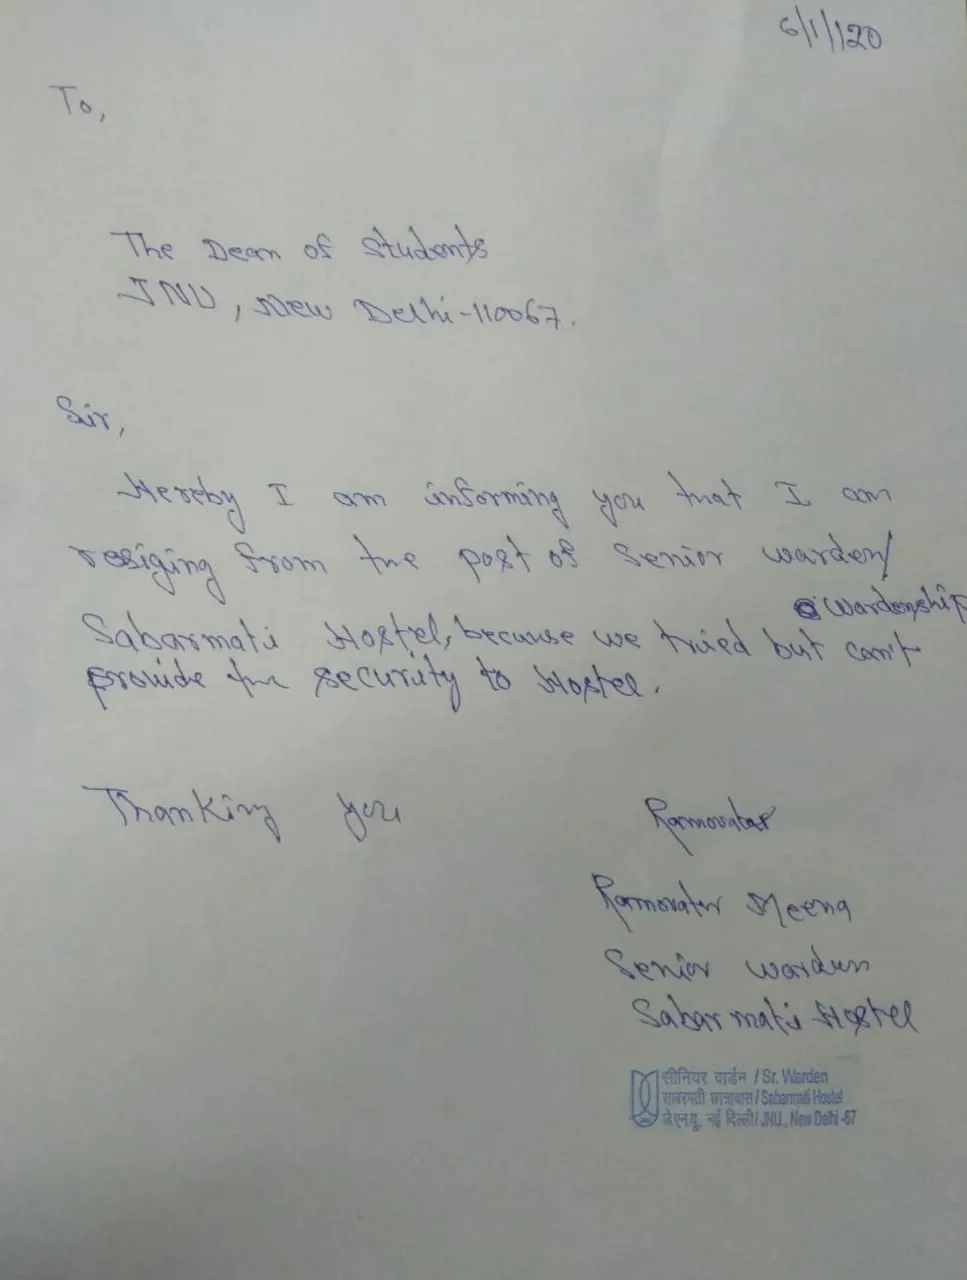 6/1/120
To,
The Dean of Students
JNU, New Delhi-110067.
Sir,
Hereby I am informing you that I am
resiging from the post of Senior warden/
wardenship
Sabarmati Hostel, because we tried but can't
provide the security to Hostel.
Thanking you
Ramovatar
Ramovatar Meena
Senior warden
Sabarmati Hostel
सीनियर वार्डन / Sr. Warden
साबरमती छात्रावास / Sabarmati Hostel
जे.एन.यू. नई दिल्ली/ JNU., New Delhi -67